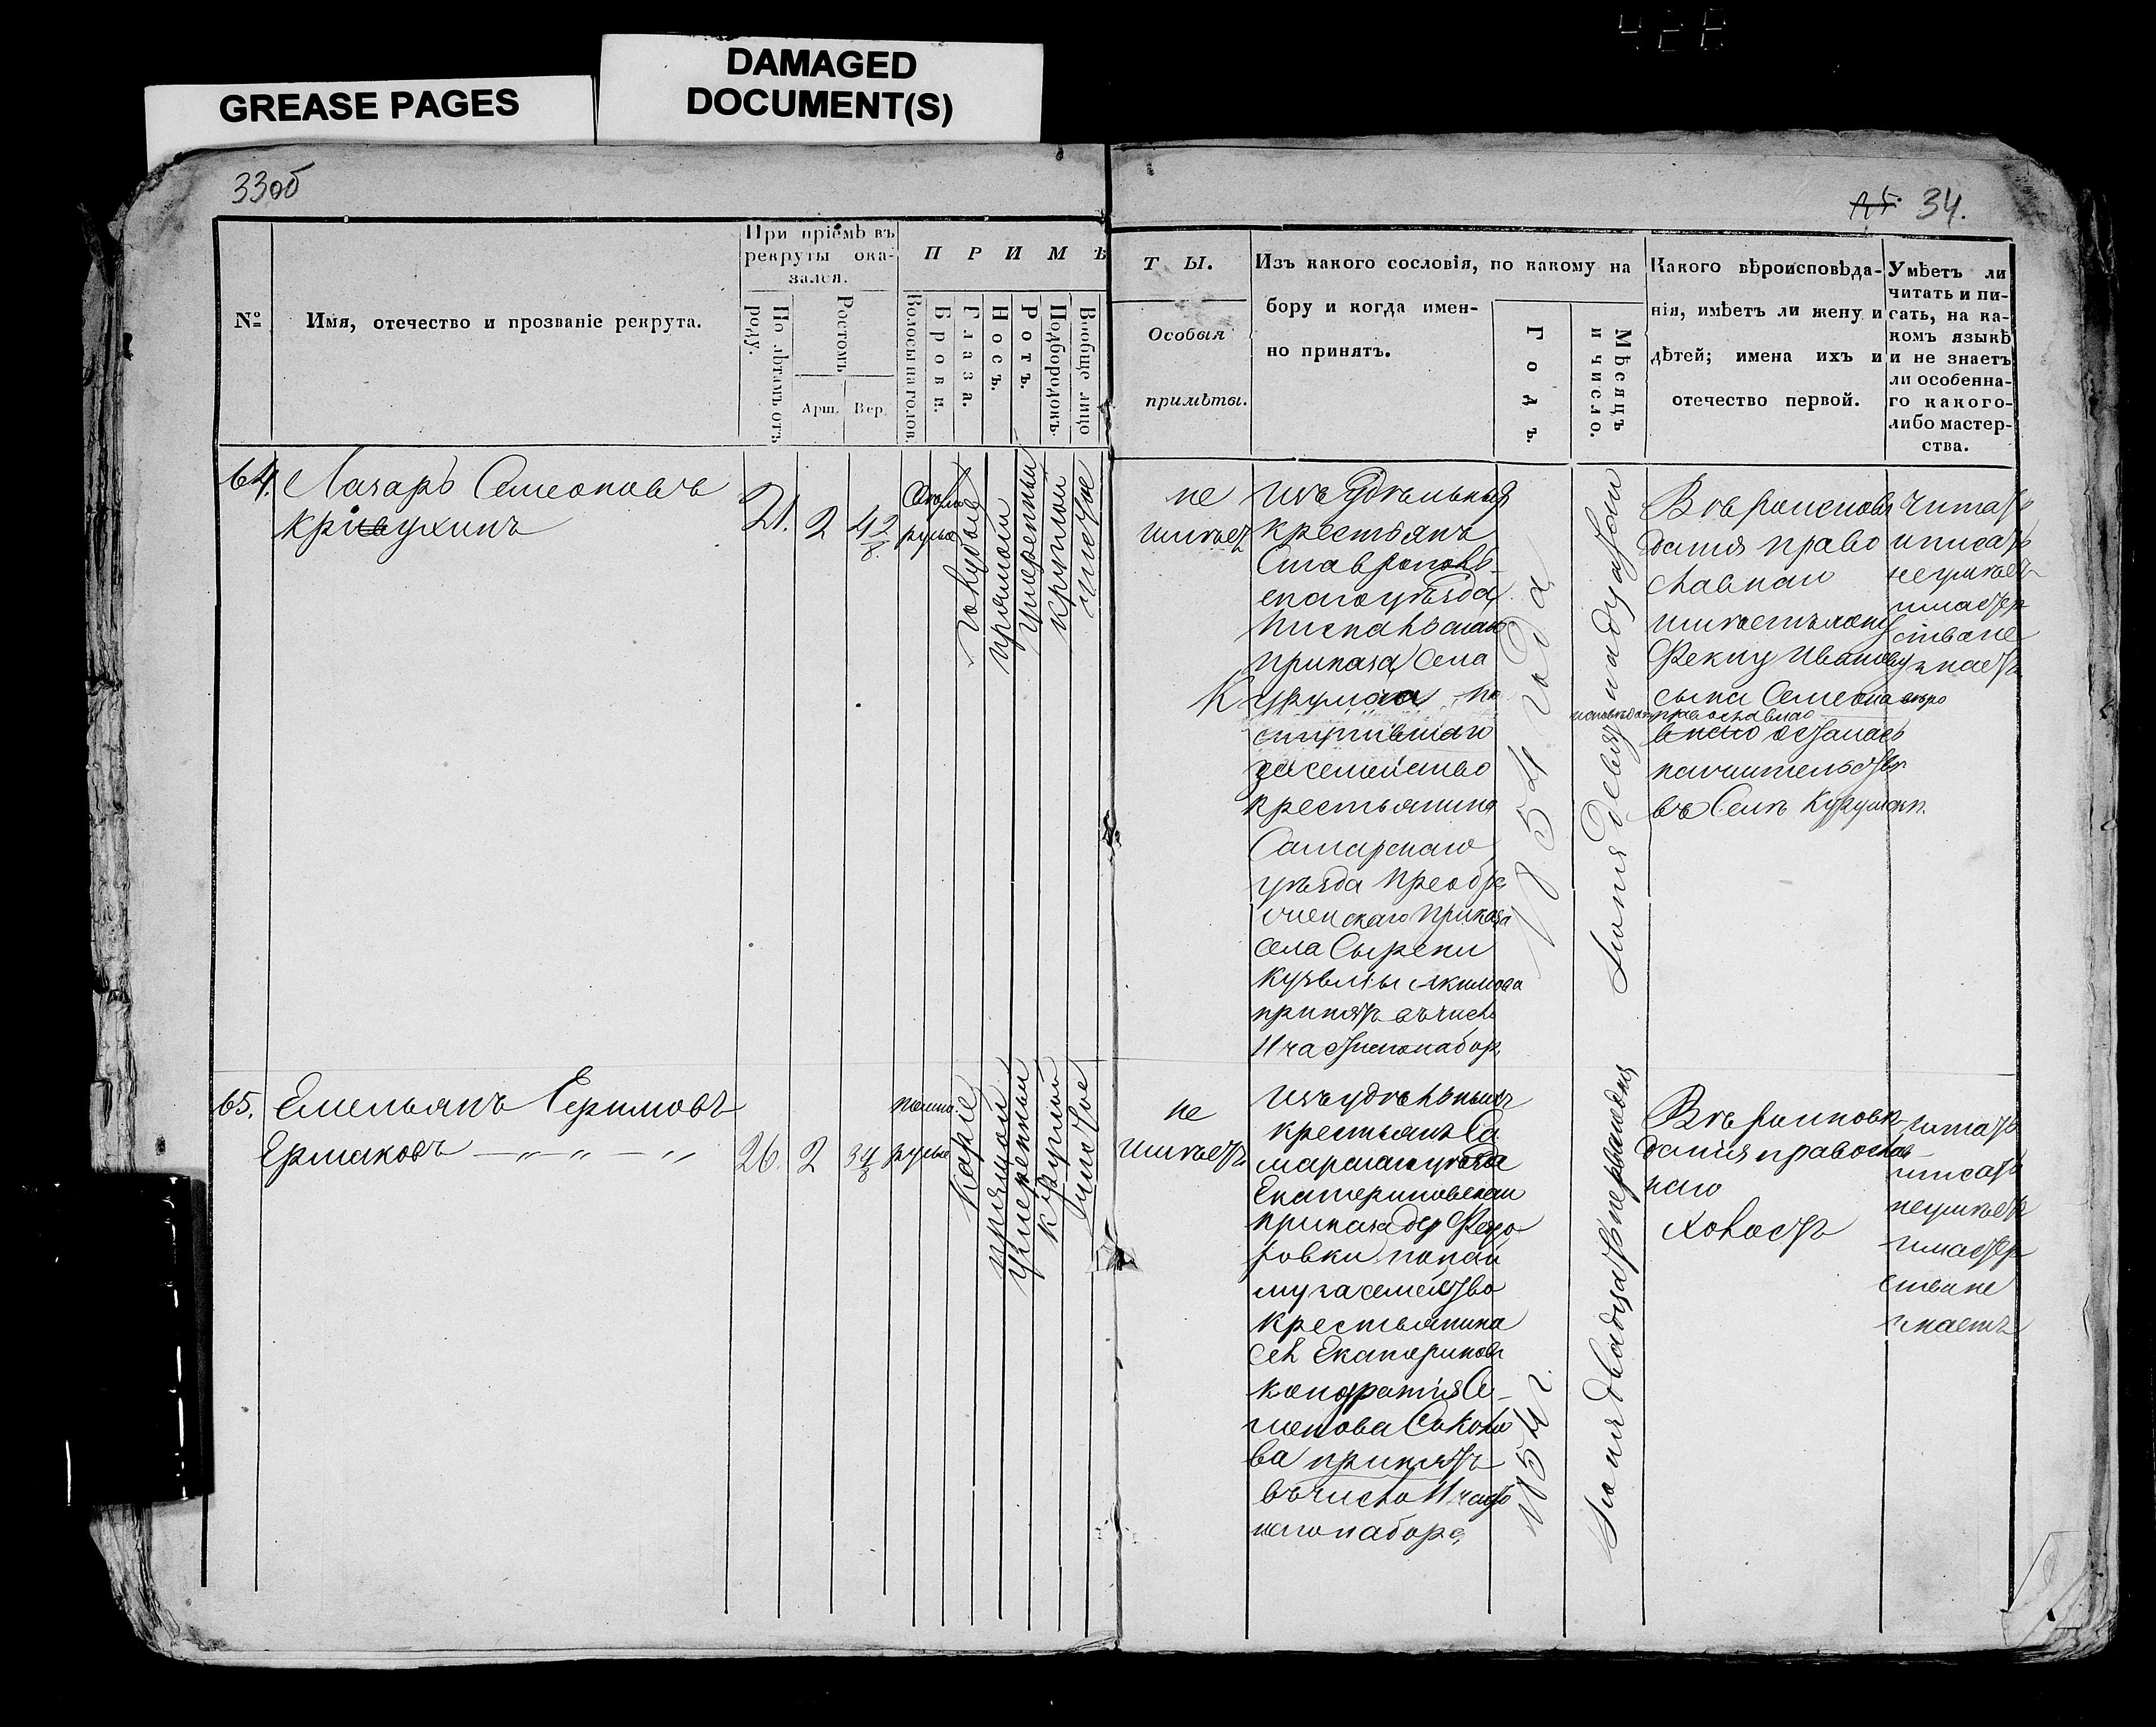 GREASE PAGES
DAMAGED
DOCUMENT(S)
33об
34.
№
Имя, отчество и прозваніе рекрута.
При пріемѣ въ
рекруты ока-
зался.
По лѣтамъ отъ
роду.
Ростомъ
Арш.
Вер.
П Р И М Ѣ
Волосы на голов.
Брови.
Глаза.
Носъ.
Ротъ.
Подбородокъ.
Вообще лицо
Т Ы.
Особыя
примѣты.
Изъ какого сословія, по какому на
бору и когда имен-
но принятъ.
Годъ.
Мѣсяцъ
и число.
Какого вѣроисповѣда-
нія, имѣетъ ли жену и
дѣтей; имена ихъ и
отечество первой.
Умѣетъ ли
читать и пи-
сать, на ка-
комъ языкѣ
и не знаетъ
ли особенна-
го какого-
либо мастер-
ства.
64.
Лазарь Семеоновъ
Кривухинъ
21.
2
4 2/8
русые
голубые
прямой
умеренный
круглой
чистое
не
имѣетъ
изъ Удѣльныхъ
крестьянъ
Ставрополь-
скаго уѣзда
приказа Села
за семейство
крестьянина
Самарскаго
уѣзда Преобра
женскаго Приказа
села Сырейки
Кузьмы Якимова
принятъ въ число
11 частнаго набор
1854 года
Іюня девятнадцатаго
Вѣроисповѣ
данія право
славнаго
имѣетъ жену
Феклу Иванову
сына Семеона
православнаго
жительство
въ Селѣ Курумочѣ.
Читать
и писать
не умѣетъ
и мастер
ства не
знаетъ
65.
Емельянъ Ефимовъ
Ермаковъ — „ — „ — „
26.
2
3 4/8
темно
русые
Каріе
прямой
умеренный
круглый
чистое
не
имѣетъ
изъ удѣльныхъ
крестьянъ Са
марскаго уѣзда
Екатериновскаго
приказа дер Федо
ровки по най
му за семейство
Крестьянина
сел Екатериновк
Кондратія Се-
менова Соколо
ва принятъ
въ число 11 част
наго набора,
1854 г.
Іюня двадцать перваго дня
Вѣроисповѣ
данія православ
наго
Холостъ
читать
и писать
не умѣетъ
и мастер
ства не
знаетъ